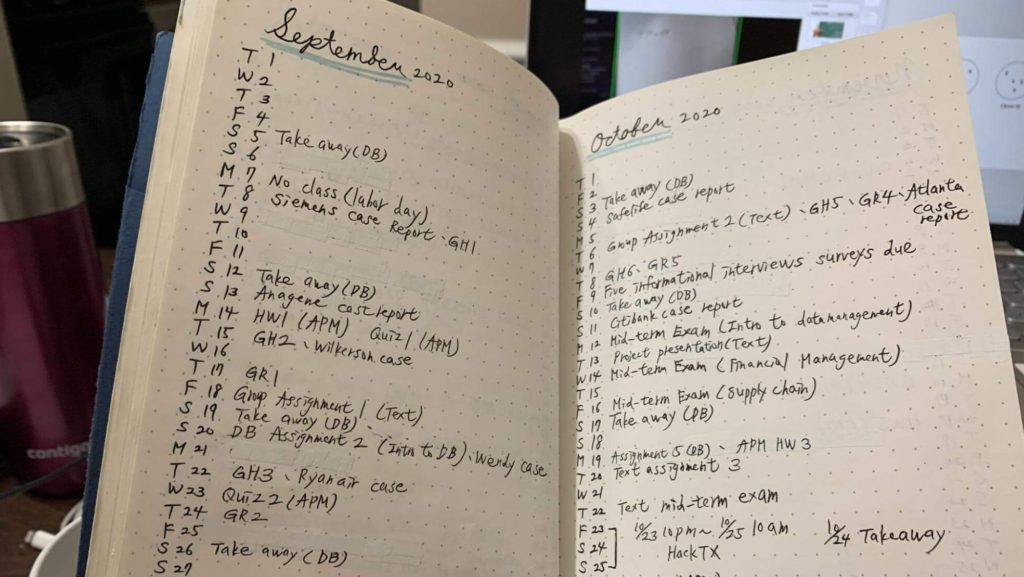 September 2020
T 1
W 2
T 3
F 4
S 5 Take away (DB)
S 6
M 7 No class (labor day)
T 8 Siemens case Report、GH1
W 9
T 10
F 11
S 12 Take away (DB)
S 13 Anagene cast report
M 14 HW1 (APM) Quiz1 (APM)
T 15 GH2、Wilkerson case
W 16
T 17 GR1
F 18 Group Assignment 1 (Text)
S 19 Take away (DB)、
S 20 DB Assignment 2 (Intro to DB)、Wendy case
M 21
T 22 GH3、Ryanair case
W 23 Quiz2 (APM)
T 24 GR2
F 25
S 26 Take away (DB)
S 27
October 2020
T 1
F 2
S 3 Take away (DB)
S 4 Safelife case report
M 5
T 6 Group Assignment 2 (Text)、GH5、GR4、Atlanta
case
report
W 7
T 8 GH6、GR5
F 9 Five informational interviews surveys due
S 10 Take away (DB)
S 11 Citibank case report
M 12 Mid-term Exam (Intro to datamanagement)
T 13 Project presentation (Text)
W 14 Mid-term Exam (Financial Management)
T 15
F 16 Mid-term Exam (Supply chain)
S 17 Take away (DB)
S 18
M 19 Assignment 5 (DB)、APM HW 3
T 20 Text assignment 3
W 21
T 22 Text mid-term exam
F 23 10/23 10pm~ 10/25 10am 10/24 Takeaway
S 24 HackTX
S 25
contigo